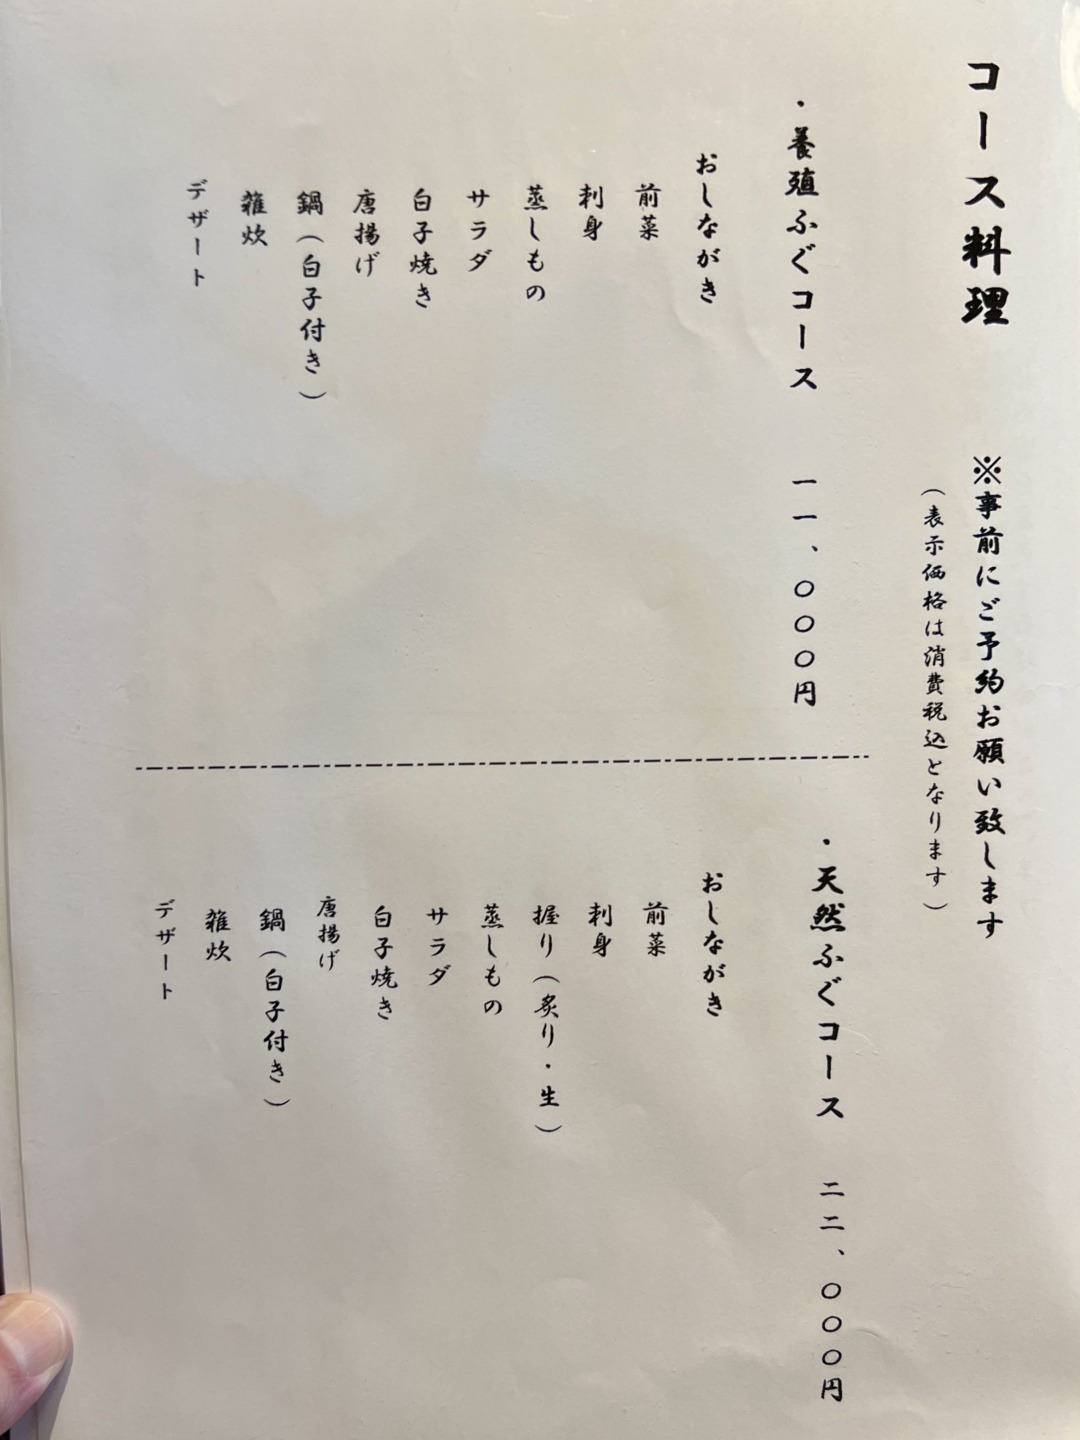 コース料理
※事前にご予約お願い致します
（表示価格は消費税込となります）
・養殖ふぐコース 一一、〇〇〇円
おしながき
前菜
刺身
蒸しもの
サラダ
白子焼き
唐揚げ
鍋（白子付き）
雑炊
デザート
・天然ふぐコース 二二、〇〇〇円
おしながき
前菜
刺身
握り（炙り・生）
蒸しもの
サラダ
白子焼き
唐揚げ
鍋（白子付き）
雑炊
デザート